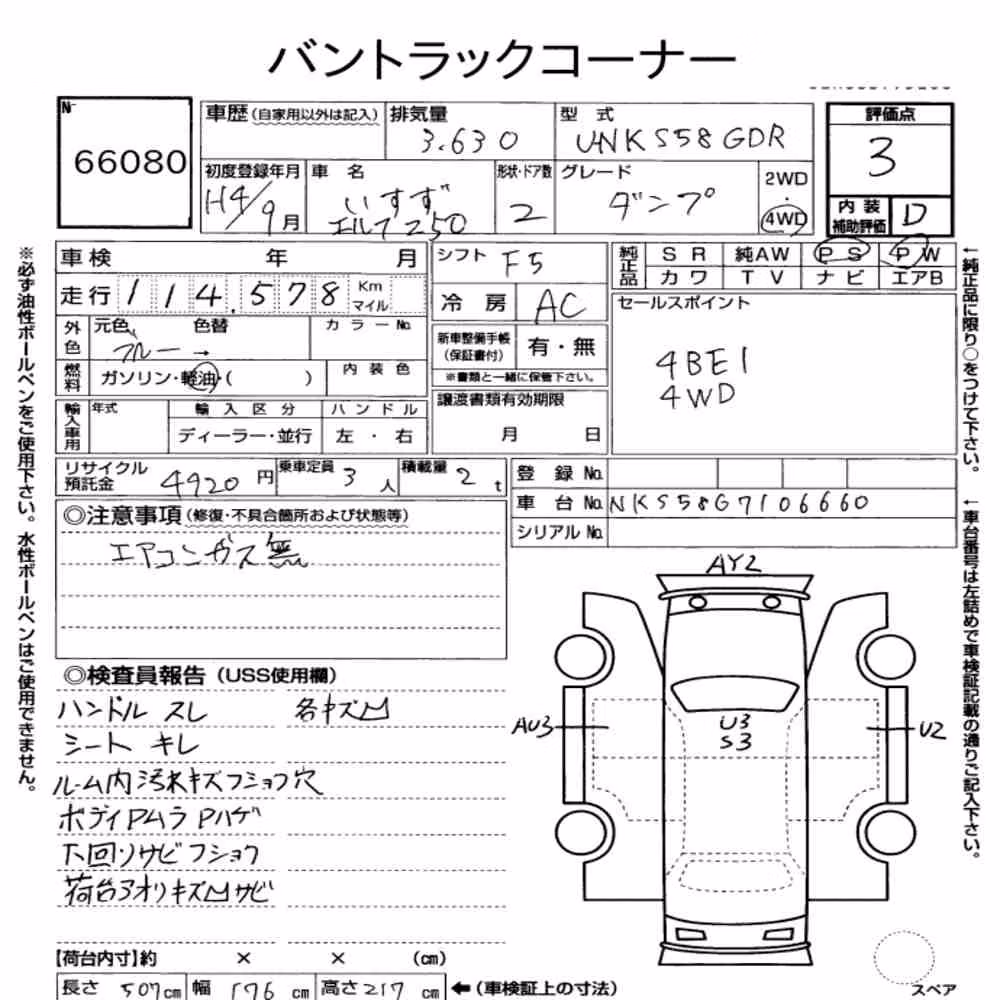 バントラックコーナー
No
66080
車歴(自家用以外は記入)
排気量
3.630
型 式
U-NKS58GDR
評価点
3
初度登録年月
H4/9月
車 名
いすず
エルフ250
形状・ドア数
2
グレード
ダンプ
2WD
・
4WD
内 装
補助評価
D
車 検 年 月
走行 114.578 Km マイル
シフト
F5
冷 房
AC
純正品
S R 純AW P S P W
カ ワ T V ナ ビ エアB
外色
元色 色替
ブルー →
カ ラ ー No.
燃料
ガソリン・軽油・( )
内 装 色
新車整備手帳
(保証書付)
有・無
※書類と一緒に保管下さい。
セールスポイント
4BE1
4WD
輸入車用
年式
輸 入 区 分
ハ ン ド ル
ディーラー・並行
左 ・ 右
譲渡書類有効期限
月 日
リサイクル
預託金
4920 円
乗車定員 3 人
積載量 2 t
登 録 No.
車 台 No. NKS58G7106660
シリアル No.
◎注意事項(修復・不具合箇所および状態等)
エアコンガス無
◎検査員報告(USS使用欄)
ハンドル スレ
各キズ凹
シート キレ
ルーム内汚れキズフショク穴
ボディPムラ Pハゲ
下回りサビフショク
荷台アオリキズ凹サビ
AY2
AU3
U3
S3
U2
【荷台内寸】約 × × (cm)
長さ 507cm 幅 176 cm 高さ217 cm
←(車検証上の寸法)
スペア
※必ず油性ボールペンをご使用下さい。水性ボールペンはご使用できません。
←純正品に限り○をつけて下さい。
←車台番号は左詰めで車検証記載の通りご記入下さい。